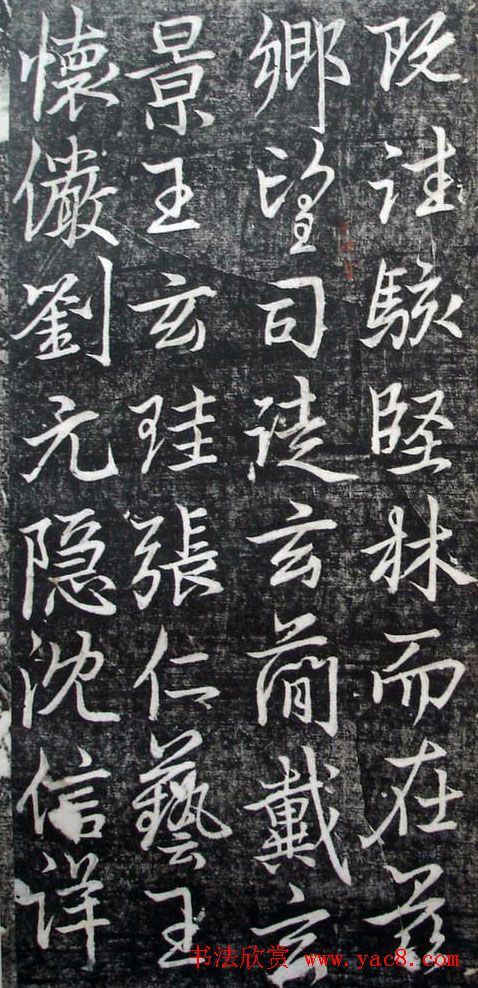 既駭堅林而在茲
鄉望司徒玄簡戴玄
景王玄珪張仁藝王
懷儼劉元隱沈信詳
书法欣赏 www.yac8.com